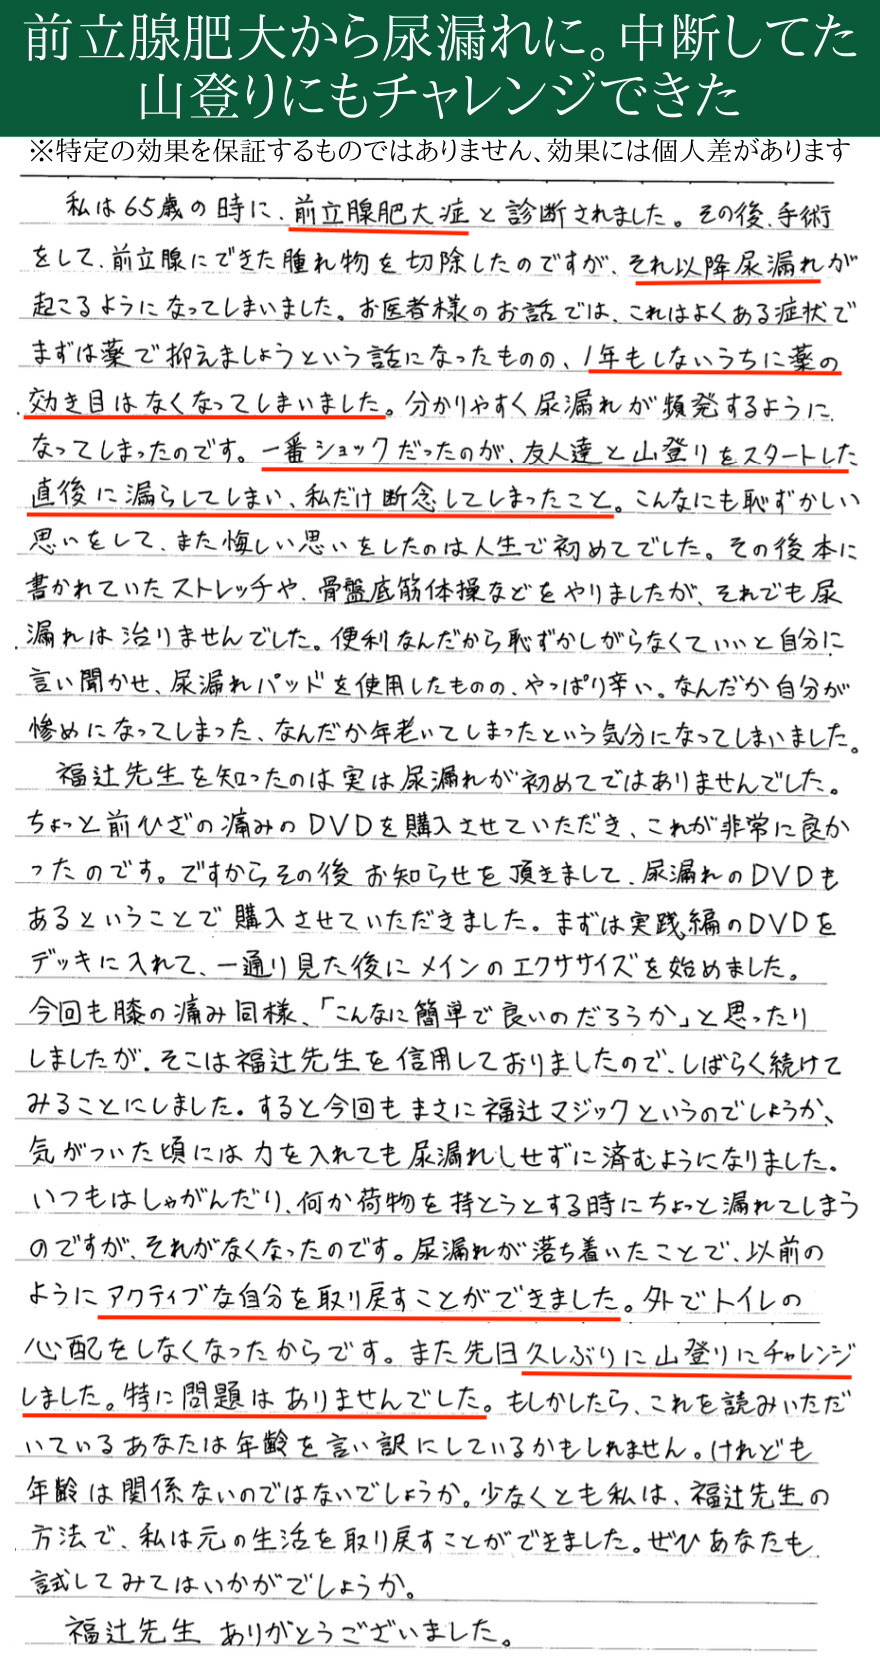 前立腺肥大から尿漏れに。中断してた
山登りにもチャレンジできた
※特定の効果を保証するものではありません、効果には個人差があります
私は65歳の時に、前立腺肥大症と診断されました。その後、手術
をして、前立腺にできた腫れ物を切除したのですが、それ以降尿漏れが
起こるようになってしまいました。お医者様のお話では、これはよくある症状で
まずは薬で抑えましょうという話になったものの、1年もしないうちに薬の
効き目はなくなってしまいました。分かりやすく尿漏れが頻発するように
なってしまったのです。一番ショックだったのが、友人達と山登りをスタートした
直後に漏らしてしまい、私だけ断念してしまったこと。こんなにも恥ずかしい
思いをして、また悔しい思いをしたのは人生で初めてでした。その後本に
書かれていたストレッチや、骨盤底筋体操などをやりましたが、それでも尿
漏れは治りませんでした。便利なんだから恥ずかしがらなくていいと自分に
言い聞かせ、尿漏れパッドを使用したものの、やっぱり辛い。なんだか自分が
惨めになってしまった、なんだか年老いてしまったという気分になってしまいました。
福辻先生を知ったのは実は尿漏れが初めてではありませんでした。
ちょっと前ひざの痛みのDVDを購入させていただき、これが非常に良か
ったのです。ですからその後お知らせを頂きまして、尿漏れのDVDも
あるということで購入させていただきました。まずは実践編のDVDを
デッキに入れて、一通り見た後にメインのエクササイズを始めました。
今回も膝の痛み同様、「こんなに簡単で良いのだろうか」と思ったり
しましたが、そこは福辻先生を信用しておりましたので、しばらく続けて
みることにしました。すると今回もまさに福辻マジックというのでしょうか、
気がついた頃には力を入れても尿漏れしせずに済むようになりました。
いつもはしゃがんだり、何か荷物を持とうとする時にちょっと漏れてしまう
のですが、それがなくなったのです。尿漏れが落ち着いたことで、以前の
ようにアクティブな自分を取り戻すことができました。外でトイレの
心配をしなくなったからです。また先日久しぶりに山登りにチャレンジ
しました。特に問題はありませんでした。もしかしたら、これを読みいただ
いているあなたは年齢を言い訳にしているかもしれません。けれども
年齢は関係ないのではないでしょうか。少なくとも私は、福辻先生の
方法で、私は元の生活を取り戻すことができました。ぜひあなたも
試してみてはいかがでしょうか。
福辻先生 ありがとうございました。